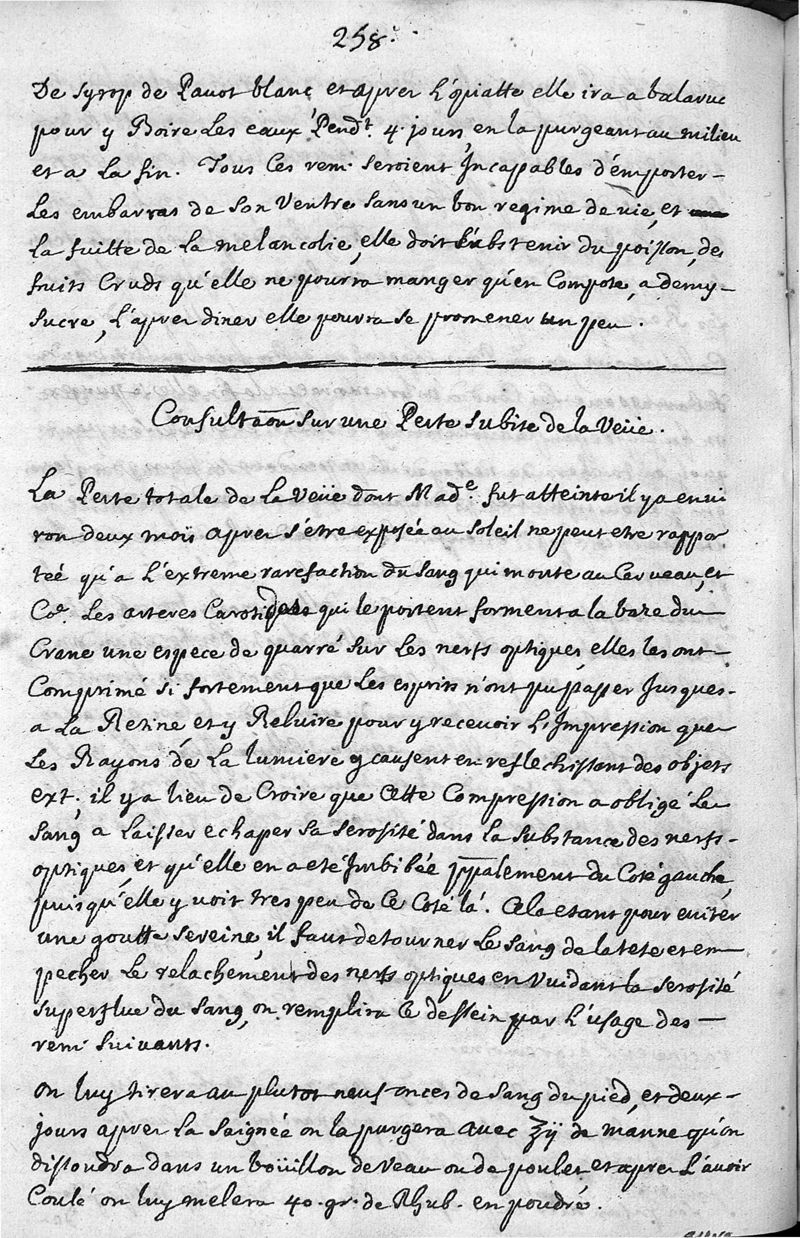 258.
De syrop de Pavot blanc et aprer L'opiatte elle ira a balaruc
pour y Boire Les eaux Pend.t 4. jours, en la purgeant au milieu
et a La fin. Tous Ces rem. seroient Incapables d'emporter
Les embarras de son Ventre sans un bon regime de vie, et
La suitte de La melancolie, elle doit s'abstenir du poisson, des
fruits Cruds qu'elle ne pourra manger qu'en Compote, a demy-
sucre, L'aprer diner elle pourra se promener un peu.
Consultaôn sur une Perte subite de la Veüe.
La Perte totale de La veüe dont Made. fut atteinte il ya envi
ron deux moïs aprer s'étre exposée au soleil ne peut etre rappor
teé qu'a L'extreme rarefaction du sang qui monte au Cerveau, et
Coe. Les arteres Carotides qui le portent forment a la baze du
Crane une espece de quarré sur Les nerfs optiques elles les ont
Comprimé si fortement que Les esprits n'ont pu passer Jusques-
a La Retine, et y Reluire pour y recevoir L'Impression que
Les Rayons de La lumiere y causent en reflechissant des objets
ext. il y a lieu de Croire que Cette Compression a obligé Le
sang a Laisser echaper sa serosité dans la substance des nerfs-
optiques, et qu'elle en a eté Imbibée ppalement du Coté gauche,
puis qu'elle y voit tres peu de Ce Coté la. Cela etant pour eviter
une goutte sereine, il faut detourner Le sang de la tete et em
pecher Le relachement des nerfs optiques en vuidant la serosité
superflue du sang, on remplira Ce dessein par L'usage des
rem. suivants.
on luy tirera au plutot neuf onces de sang du pied, et deux-
jours aprer La saignée on la purgera avec ℥ij de manne qu'on
dissoudra dans un boüillon de veau ou de poulet et aprer L'avoir
Coulé on luy melera 40. gr. de Rhub. en poudré.